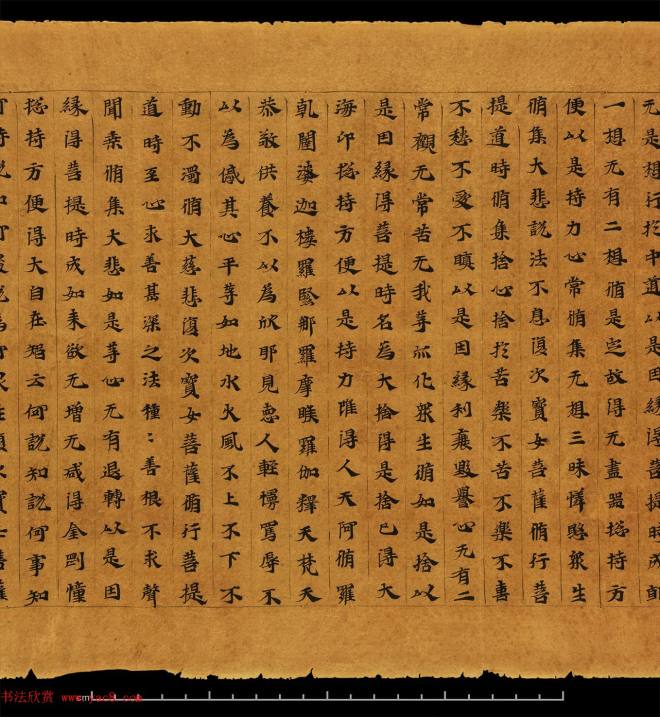 无是想行於中道以是因緣得菩提時成郍
一想无有二想脩是定故得无盡器捴持方
便以是持力心常脩集无想三昧憐愍衆生
脩集大悲說法不息復次寳女菩薩脩行菩
提道時脩集捨心捨於苦樂不苦不樂不喜
不愁不愛不瞋以是因緣利襄毀譽心无有二
常觀无常苦无我等𣲖化衆生脩如是捨以
是因緣得菩提時名為大捨得是捨已得大
海印捴持方便以是持力唯得人天阿脩羅
乹闥婆迦樓羅緊郍羅摩睺羅伽釋天梵天
恭敬供養不以為欣耶見惡人輕慢罵辱不
以為慼其心平等如地水火風不上不下不
動不濁脩大慈悲復次寳女菩薩脩行菩提
道時至心求善甚深之法種〻善根不求聲
聞乗脩集大悲如是等心无有退轉以是因
緣得菩提時成如来欲无增无減得金剛憧
捴持方便得大自在猶云何說知說何事知
書法欣赏